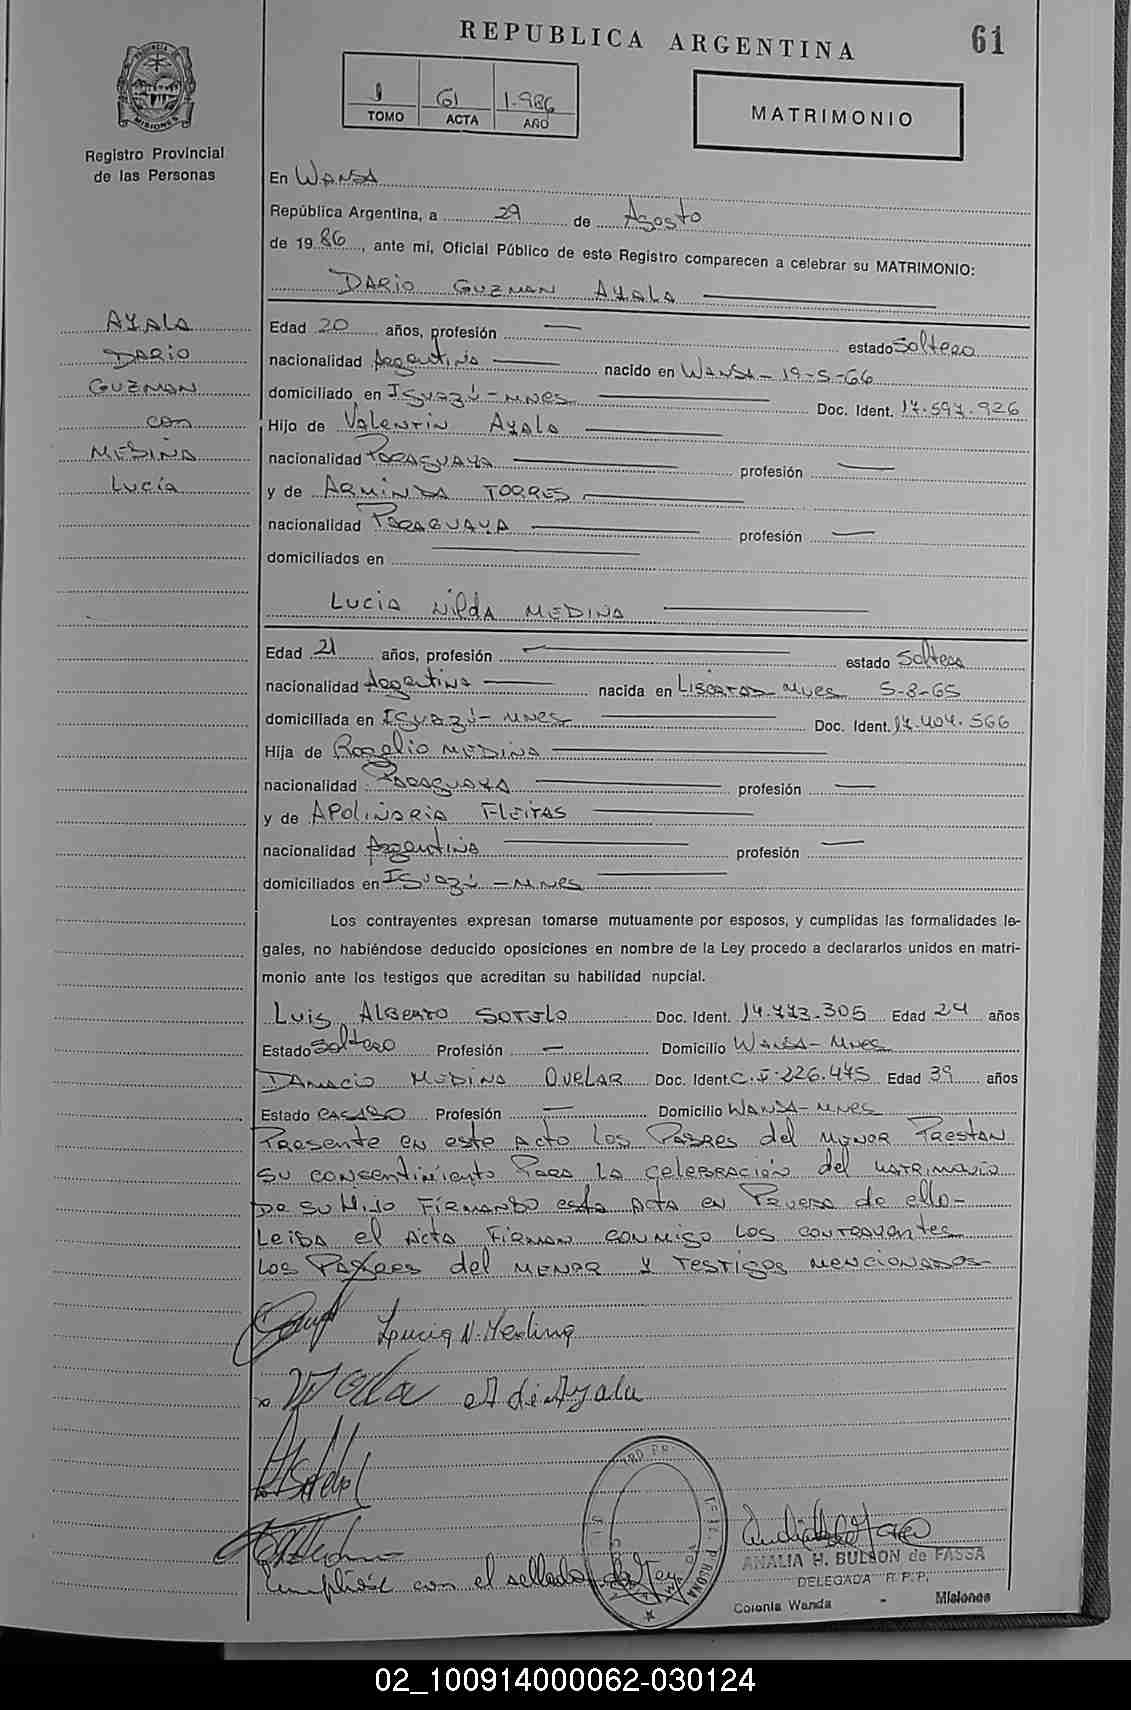 REPUBLICA ARGENTINA
61
1 61 1.986
TOMO ACTA AÑO
MATRIMONIO
PROVINCIA DE MISIONES
Registro Provincial
de las Personas
En WANDA
República Argentina, a 29 de Agosto
de 19 86, ante mí, Oficial Público de este Registro comparecen a celebrar su MATRIMONIO:
DARIO GUZMAN AYALA
AYALA
DARIO
GUZMAN
con
MEDINA
Lucía
Edad 20 años, profesión — estado Soltero
nacionalidad Argentina nacido en WANDA - 19-5-66
domiciliado en IGUAZÚ - MNES Doc. Ident. 17.597.926
Hijo de Valentin Ayala
nacionalidad PARAGUAYA profesión —
y de ARMINDA TORRES
nacionalidad PARAGUAYA profesión —
domiciliados en
LUCIA NILDA MEDINA
Edad 21 años, profesión — estado Soltera
nacionalidad Argentina nacida en LIBERTAD MNES 5-8-65
domiciliada en IGUAZÚ - MNES Doc. Ident. 17.404.566
Hija de Rogelio MEDINA
nacionalidad PARAGUAYA profesión —
y de APOLINARIA FLEITAS
nacionalidad Argentina profesión —
domiciliados en IGUAZÚ - MNES
Los contrayentes expresan tomarse mutuamente por esposos, y cumplidas las formalidades le-
gales, no habiéndose deducido oposiciones en nombre de la Ley procedo a declararlos unidos en matri-
monio ante los testigos que acreditan su habilidad nupcial.
Luis ALBERTO SOTELO Doc. Ident. 14.773.305 Edad 24 años
Estado Soltero Profesión — Domicilio WANDA - MNES
DAMACIO MEDINA OVELAR Doc. Ident. C.I. 226.475 Edad 39 años
Estado CASADO Profesión — Domicilio WANDA - MNES
PRESENTE EN ESTE ACTO LOS PADRES del MENOR PRESTAN
SU CONSENTIMIENTO PARA LA CELEBRACIÓN del MATRIMONIO
DE SU HIJO FIRMANDO esta ACTA EN PRUEBA de ello-
LEIDA el ACTA FIRMAN CONMIGO LOS CONTRAYENTES
LOS PADRES del MENOR Y TESTIGOS MENCIONADOS-
Lucia N. Medina
A de Ayala
Cumplióse con el sellado de ley
ANALIA H. BULSON de FASSA
DELEGADA R.P.P.
Colonia Wanda - Misiones
02_100914000062-030124